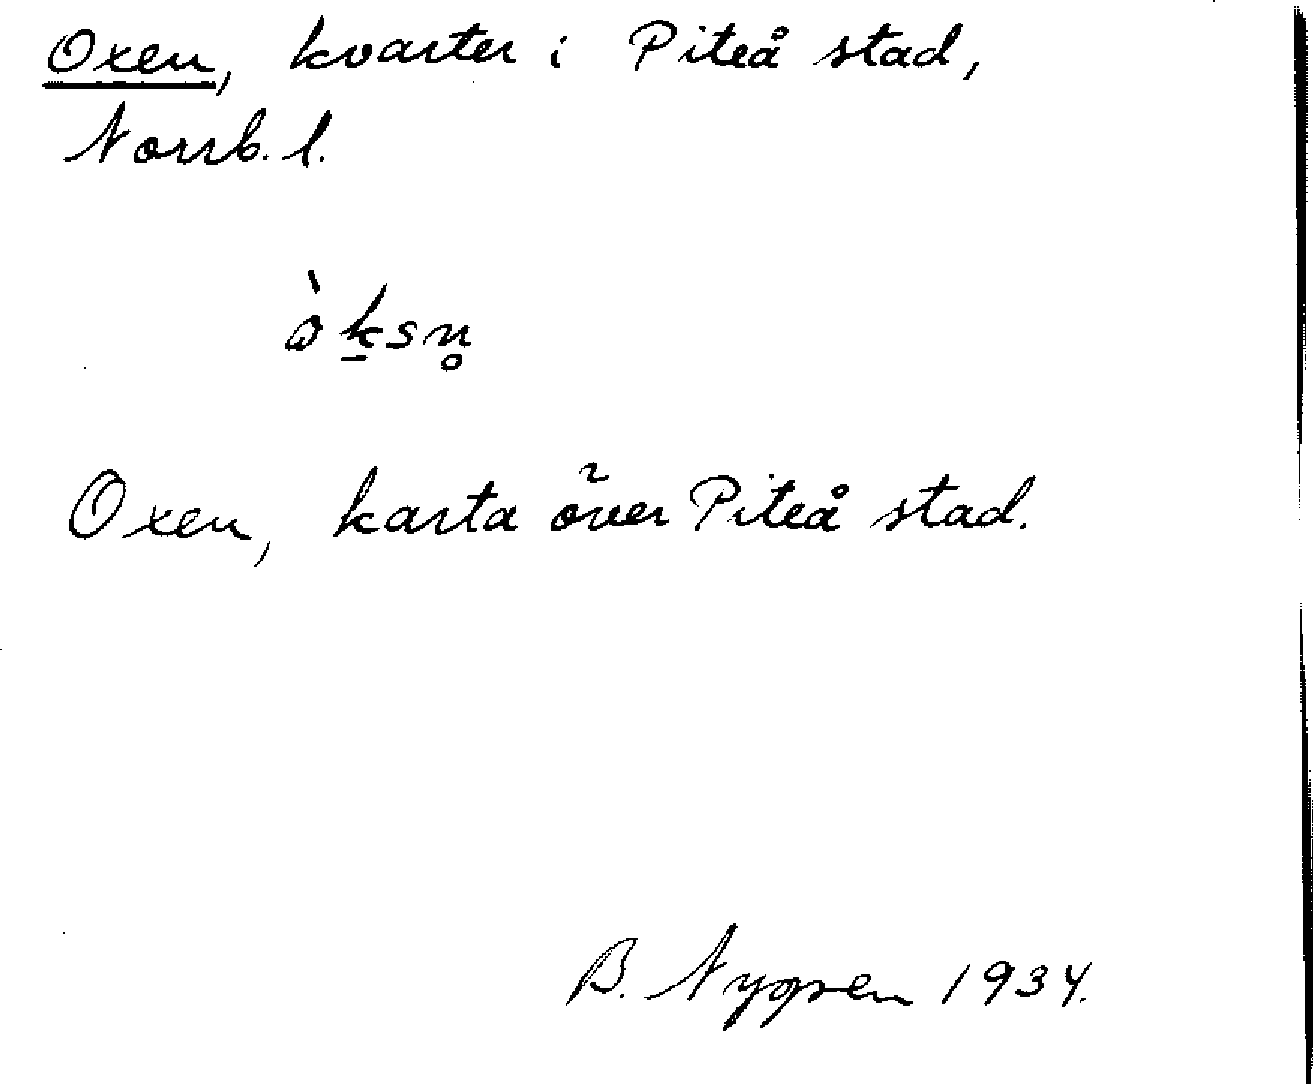 Oxen, kvarter i Piteå stad,
Norrb. l.
ò̀k̠sn̥
Oxen, karta över Piteå stad.
B. Nygren 1934.